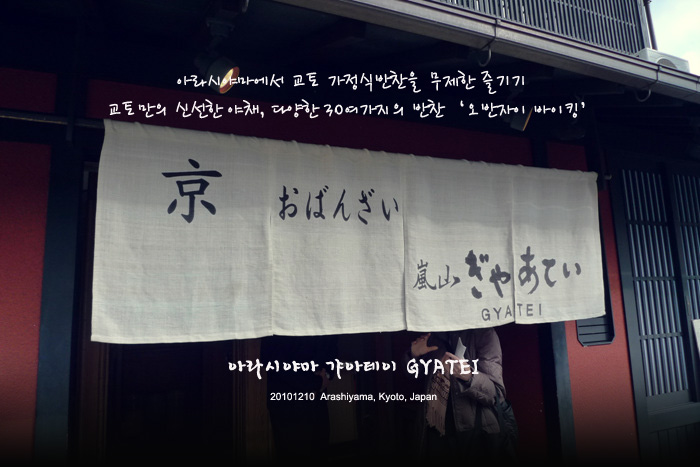 아라시야마에서 교토 가정식반찬을 무제한 즐기기
교토만의 신선한 야채, 다양한 30여가지의 반찬 ‘오반자이 바이킹’
京 おばんざい
嵐山 ぎゃあてい
GYATEI
아라시야마 갸아테이 GYATEI
20101210 Arashiyama, Kyoto, Japan